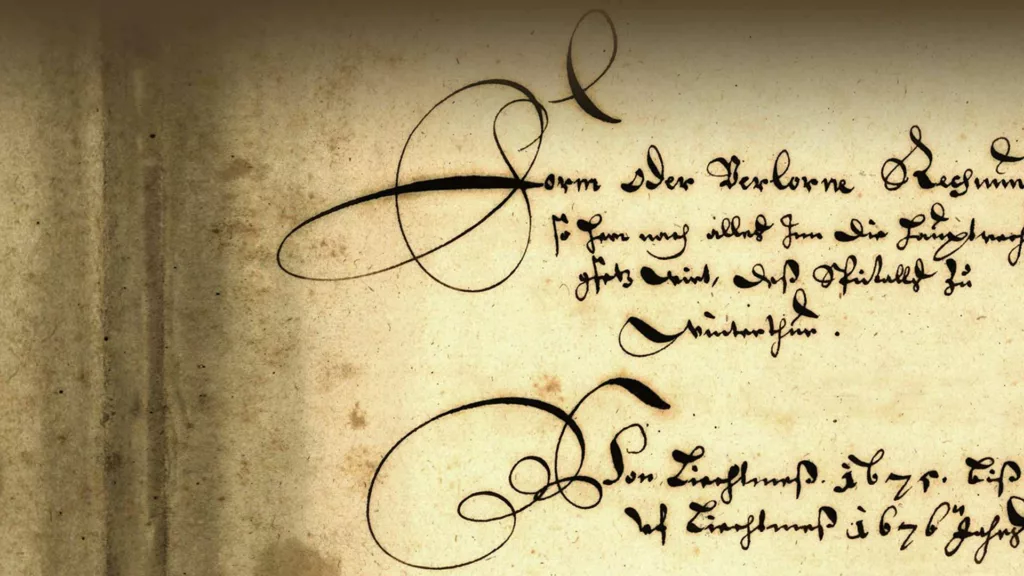 Form Oder Verlorne Rechnun
so hern nach alles Inn die haubtrech
gsetz wirt, deß Spitalls zu
Winterthur.
Von Liechtmeß. 1675. biß
uf Liechtmeß 1676 Jahrs